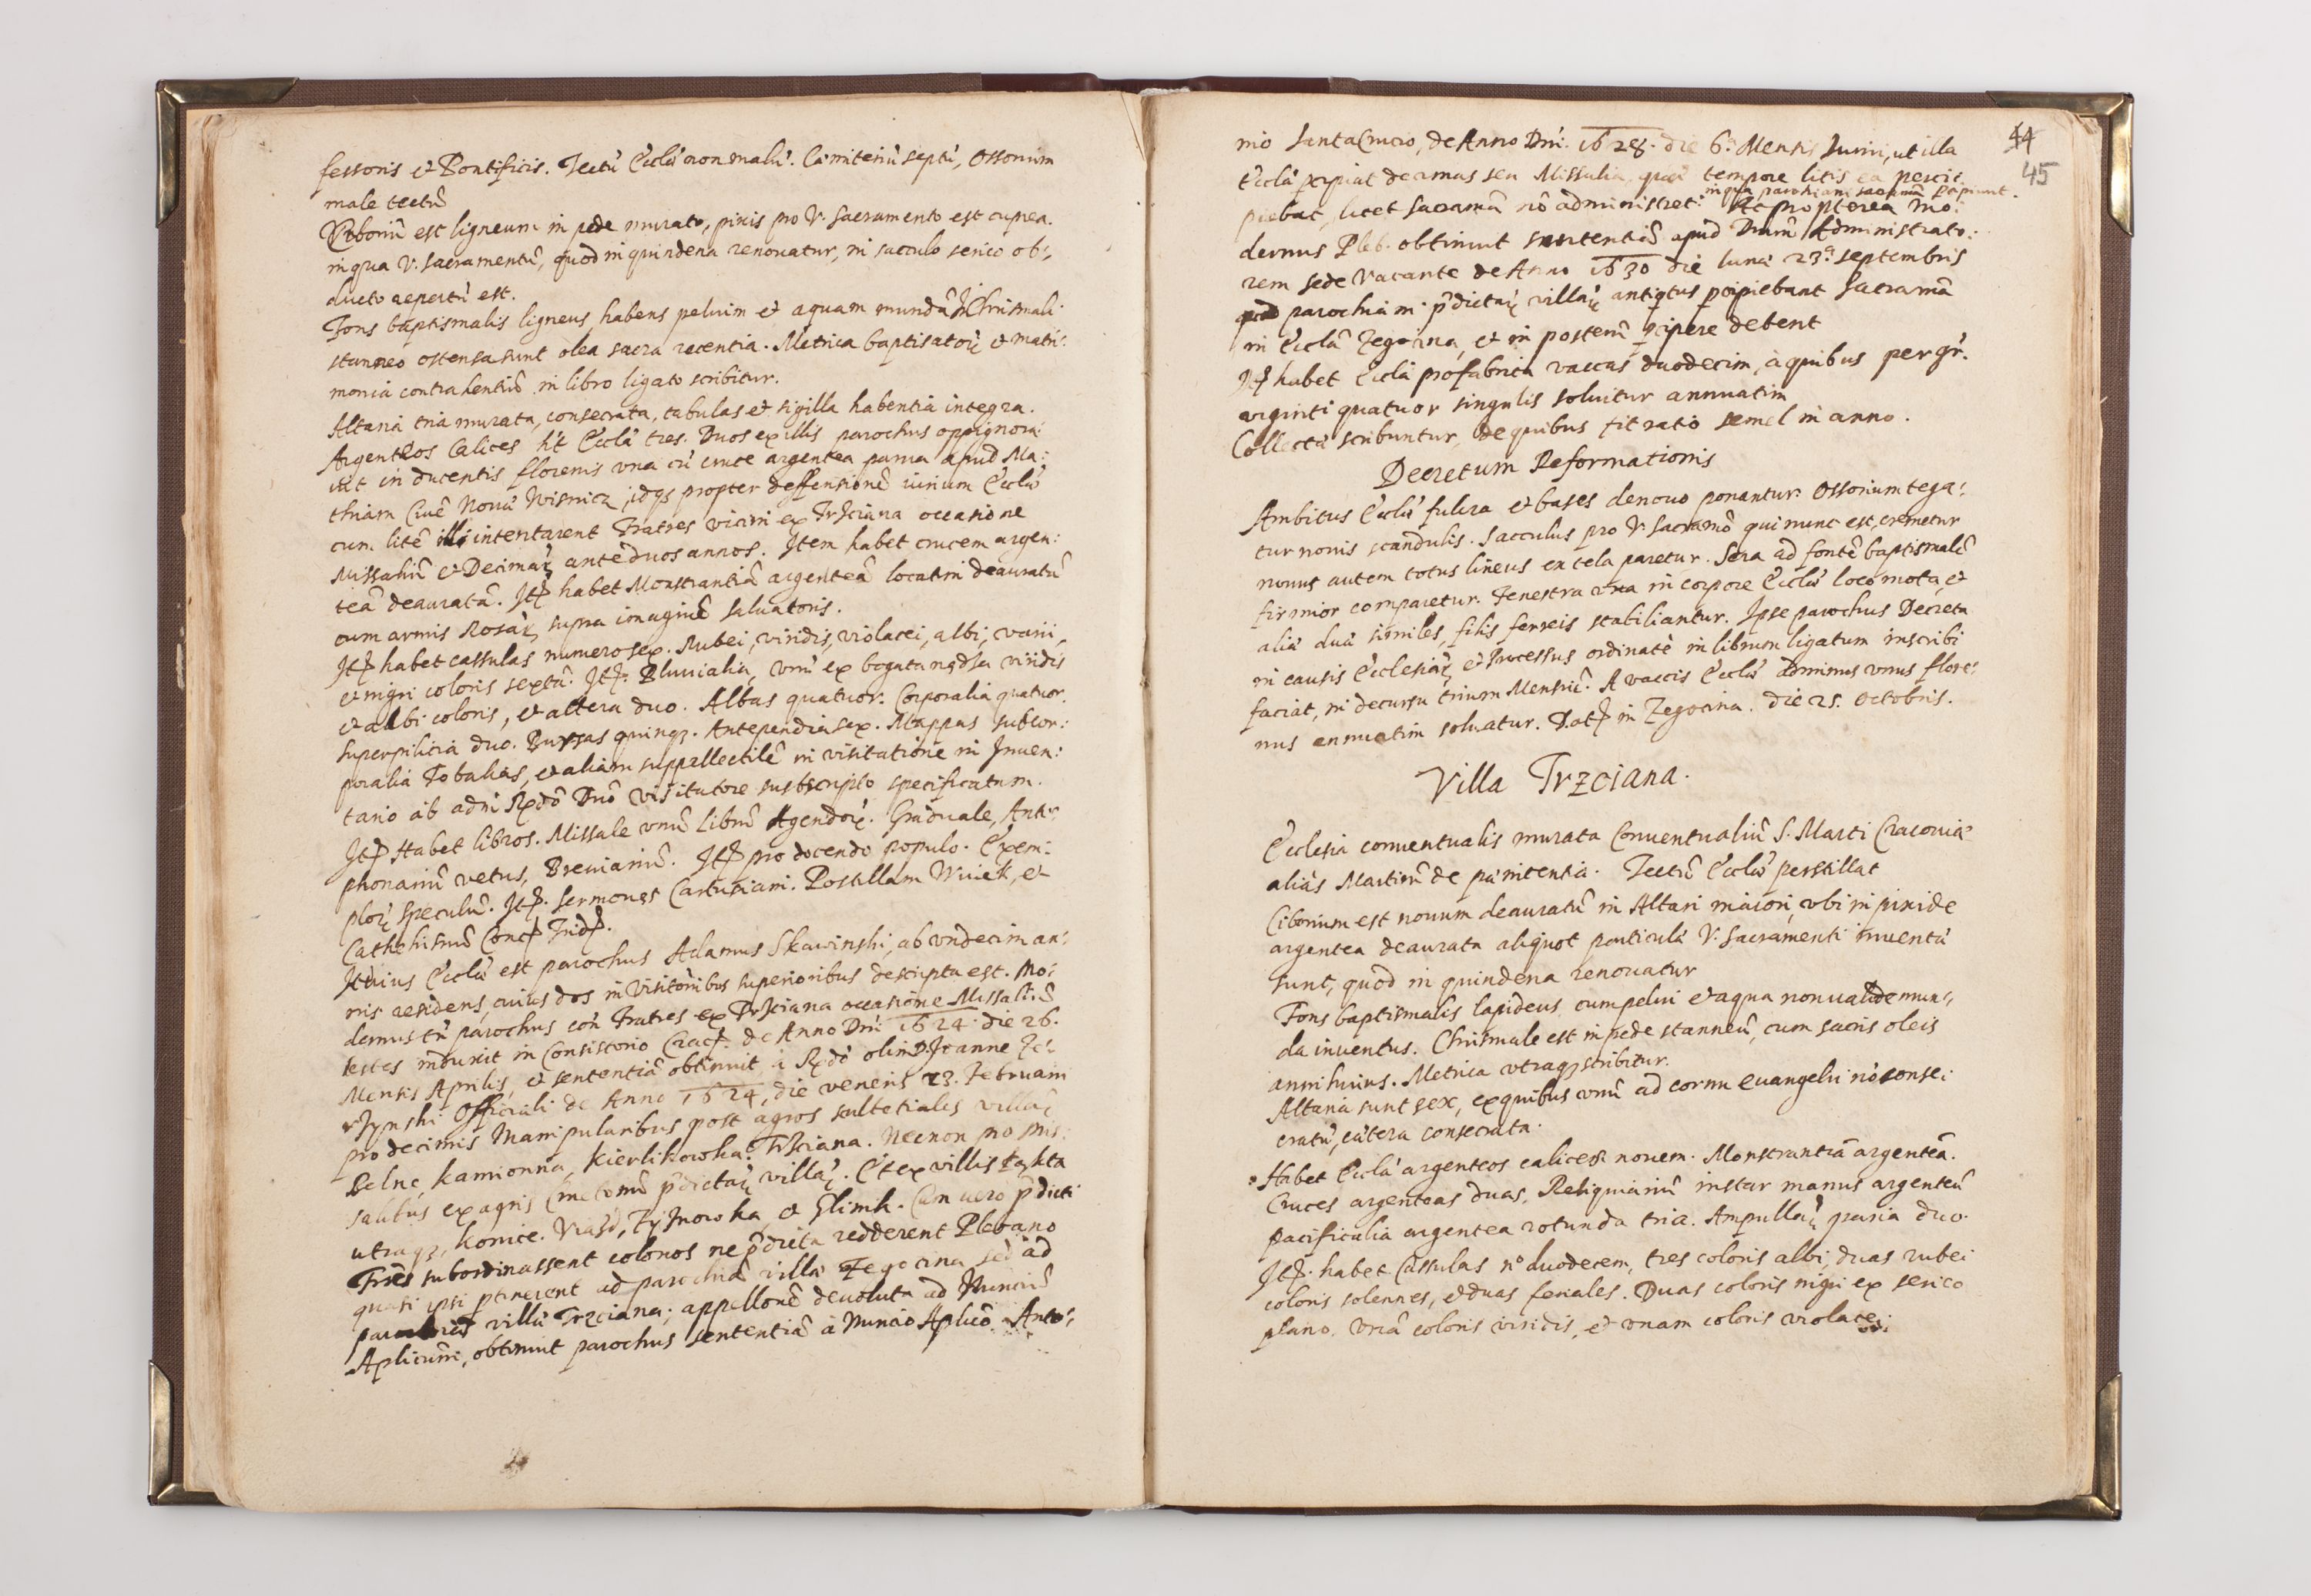 fessoris et Pontificis. Tectū Ecclæ non malū. Cimiteriū septū, Ossorium
male tectū
Ciboriū est ligneum in pede murato, pixis pro V. Sacramento est cuprea.
in qua V. Sacramentū, quod in quindena renovatur, in sacculo serico ob:
ducto repertū est.
Fons baptismalis ligneus, habens peluim et aquam mundā. In Chrismali
stanneo ostensa sunt olea sacra recentia. Metrica baptisatorū et matri:
monia contrahentiū in libro ligato scribitur.
Altaria tria murata, consecrata, tabulas et sigilla habentia integra.
Argenteos Calices ht Ecclā tres. Duos ex illis parochus oppignora:
uit in ducentis florenis vna cū cruce argentea parua apud Ma:
thiam Ciuē Nouæ Wisnicz, idqȝ propter deffensionē iurium Ecclæ
cum litē illi intentarent Fratres vicini ex Trzciana occasione
Missaliū et Decimarū ante duos annos. Item habet crucem argen:
teā deauratā. Itē habet Monstrantiā argenteā locatim deauratā
cum armis Rosarū supra imaginē Saluatoris.
Itē habet cassulas numero sex. Rubei, viridis, violacei, albi, varii,
et nigri coloris sextā. Itē. Pluuialia, vnū ex bogata viridis
et albi coloris, et altera duo. Albas quatuor. Corporalia quatuor.
Superpilicia duo. Bursas quinqȝ. Antependia sex. Mappas subcor:
poralia Tobalias, et aliam suppellectilē in visitatione in Inuen:
tario ab adm Rṇdō Dnō visitatore subscripto specificatam.
Itē Habet libros. Missale vnū librū Agendorū. Graduale, Anti:
phonariū vetus, Breuiariū. Itē pro docendo populo. Exem:
plorū Speculū. Itē. Sermones Cartusiani. Postillam Wuiek, et
Cathechismū Conc. Trid.
Huius Ecclæ est parochus Adamus Skawinski, ab vndecim an:
nis residens, cuius dos in visitōnibus superioribus descripta est. Mo:
dernus tn̄ parochus con Fratres ex Trzciana occasione Missaliū
testes induxit in Consistorio Crac. de Anno Dni 1624. die 26.
Mensis Aprilis, et sententiā obtinuit, à Rṇdō olim D. Joanne Ze:
rzynski Officiali de Anno 1624, die veneris 23. Februarii
pro decimis Manipularibus post agros sultetiales villarū
Belne, Kamionna, Kierlikowka. Trzciana. Necnon pro Mis:
salibus ex agris Cmetonū p̄dictarū villarū. Et ex villis Łąkta
utraqȝ, Konice. Viasd, Zyznowka, et Glinik. Cum uero p̄dicti
Frēs subordinassent colonos ne p̄dicta redderent Plebano
quasi ipsi ptinerent ad parochiā villæ Zegocina sed ad
parochiā villæ Trzciana; appellonē deuoluta ad Nunciū
Aplicum, obtinuit parochus sententiā à Nuncio Aplicō Anto:
nio SantaCrucio, de Anno Dni: 1628. die 6ª Mensis Iunii, ut illa
Ecclā pcipiat decimas seu Missalia, quæ tempore litis ea percis
in qua parochiani sacramā pcipiunt.
piebat, licet Sacramā nō administret. Ac propterea Mo:
dernus Pleb. obtinuit sententiā apud Dnum Administrato:
rem sede vacante de Anno 1630 die lunæ 23ª Septembris
parochiani p̄dictarū villarū antiqtus pcipiebant Sacramā
in Ecclā Zegocina, et in posterū pcipere debent
Itē habet Ecclā pro fabrica vaccas duodecim, à quibus per gr.
viginti quatuor singulis soluitur annuatim
Collecta scribuntur, de quibus fit ratio semel in anno.
Decretum Reformationis
Ambitus Ecclæ fulcra et bases denouo ponantur. Ossorium tega:
tur nouis scandulis. Sacculus pro V. Sacramō qui nunc est, cremetur
nouus autem totus lineus ex tela paretur. Sera ad fontē baptismalē
firmior comparetur. Fenestra vna in corpore Ecclæ loco mota, et
aliæ duæ similes, filis ferreis stabiliantur. Ipse parochus Decreta
in causis Ecclesiarū et Processus ordinatè in librum ligatum inscribi
faciat, in decursu trium Mensiū. A vaccis Ecclæ adminus vnus flore:
nus annuatim soluatur. Dat in Zegocina. die 25. Octobris.
Villa Trzciana.
Ecclesia conuentualis murata Conuentualiū S. Marci Cracouiæ
aliàs Martirū de pænitentia. Tectū Ecclæ perstillat
Ciborium est nouum deauratū in Altari maiori, vbi in pixide
argentea deaurata aliquot particulæ V. Sacramenti inuentæ
sunt, quod in quindena renouatur
Fons baptismalis lapideus cum pelui et aqua non ualde mun:
da inuentus. Chrismale est in pede stanneū, cum sacris oleis
anni huius. Metrica vtraqȝ scribitur.
Altaria sunt sex, ex quibus vnū ad cornu Euangelii nō conse:
cratū, cætera consecrata.
Habet Ecclā argenteos calices nouem. Monstrantiā argenteā.
Cruces argenteas duas, Reliquiariū instar manus argenteū
pacificalia argentea rotunda tria. Ampullarū paria duo.
Itē. habet Cassulas nº duodecem, tres coloris albi, duas rubei
coloris solennes, et duas feriales. Duas coloris nigri ex serico
plano. Vnā coloris viridis, et vnam coloris violacei.
44
45